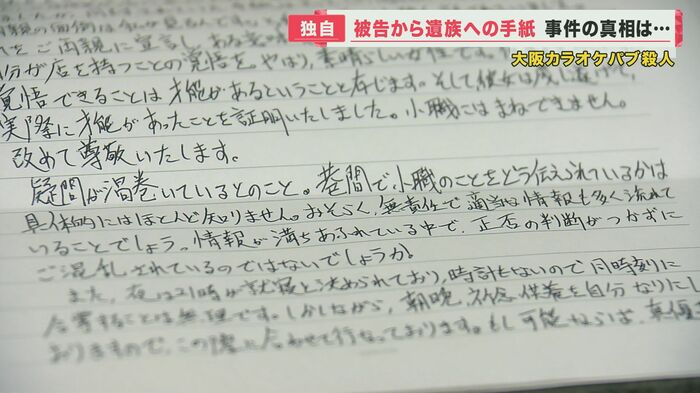 独自
被告から遺族への手紙 事件の真相は…
大阪カラオケパブ殺人
をご両親に宣言し、ある意味
自分が店を持つことの覚悟を。やはり、素晴らしい女性です。
覚悟できることは才能があるということと存じます。そして彼女は成し遂げて、
実際に才能があったことを証明いたしました。小職にはまねできません。
改めて尊敬いたします。
疑問が渦巻いているとのこと。巷間で小職のことをどう伝えられているかは
具体的にはほとんど知りません。おそらく、無責任で適当な情報も多く流れて
いることでしょう。情報が満ちあふれている中で、正否の判断がつかずに
ご混乱されているのではないでしょうか。
また、夜は21時が就寝と決められており、時計もないので同時刻に
合掌することは無理です。しかしながら、朝晩、祈念、供養を自分なりにし
おりますので、この際に合わせて行なっております。もし可能ならば、真優